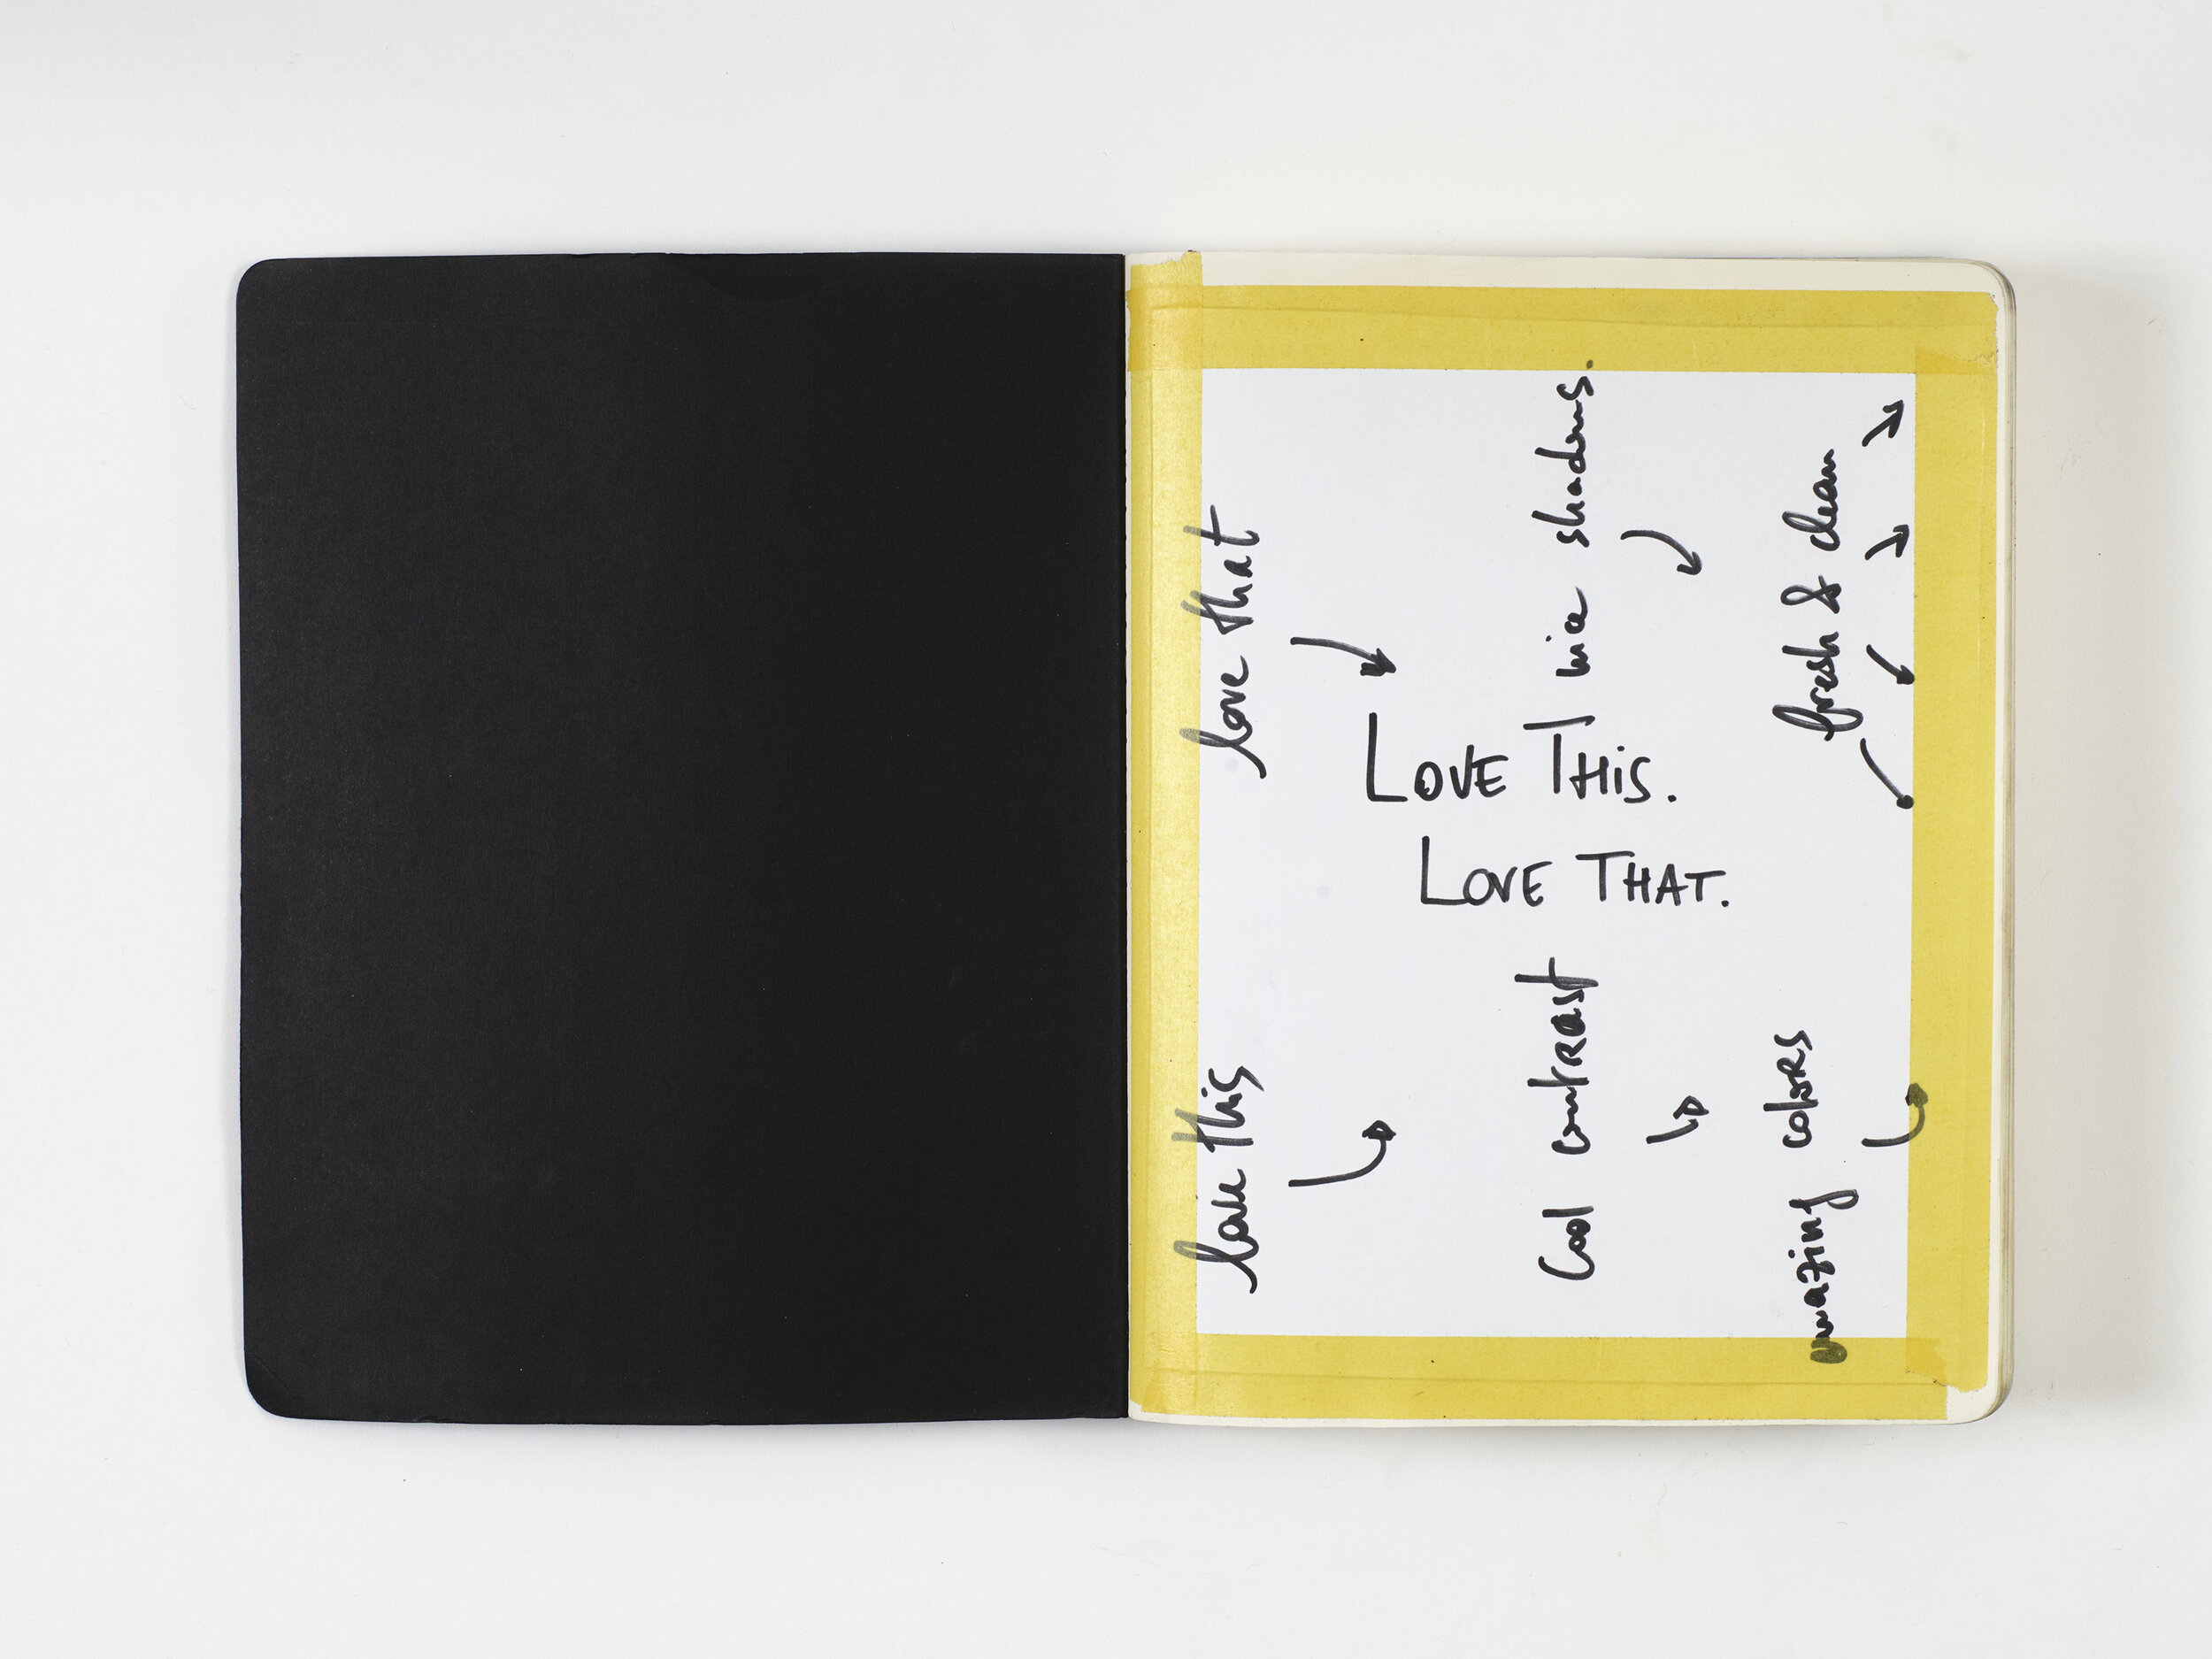 love this
love that
LOVE THIS.
LOVE THAT.
Cool contrast
nice shadows.
amazing colors
fresh & clean